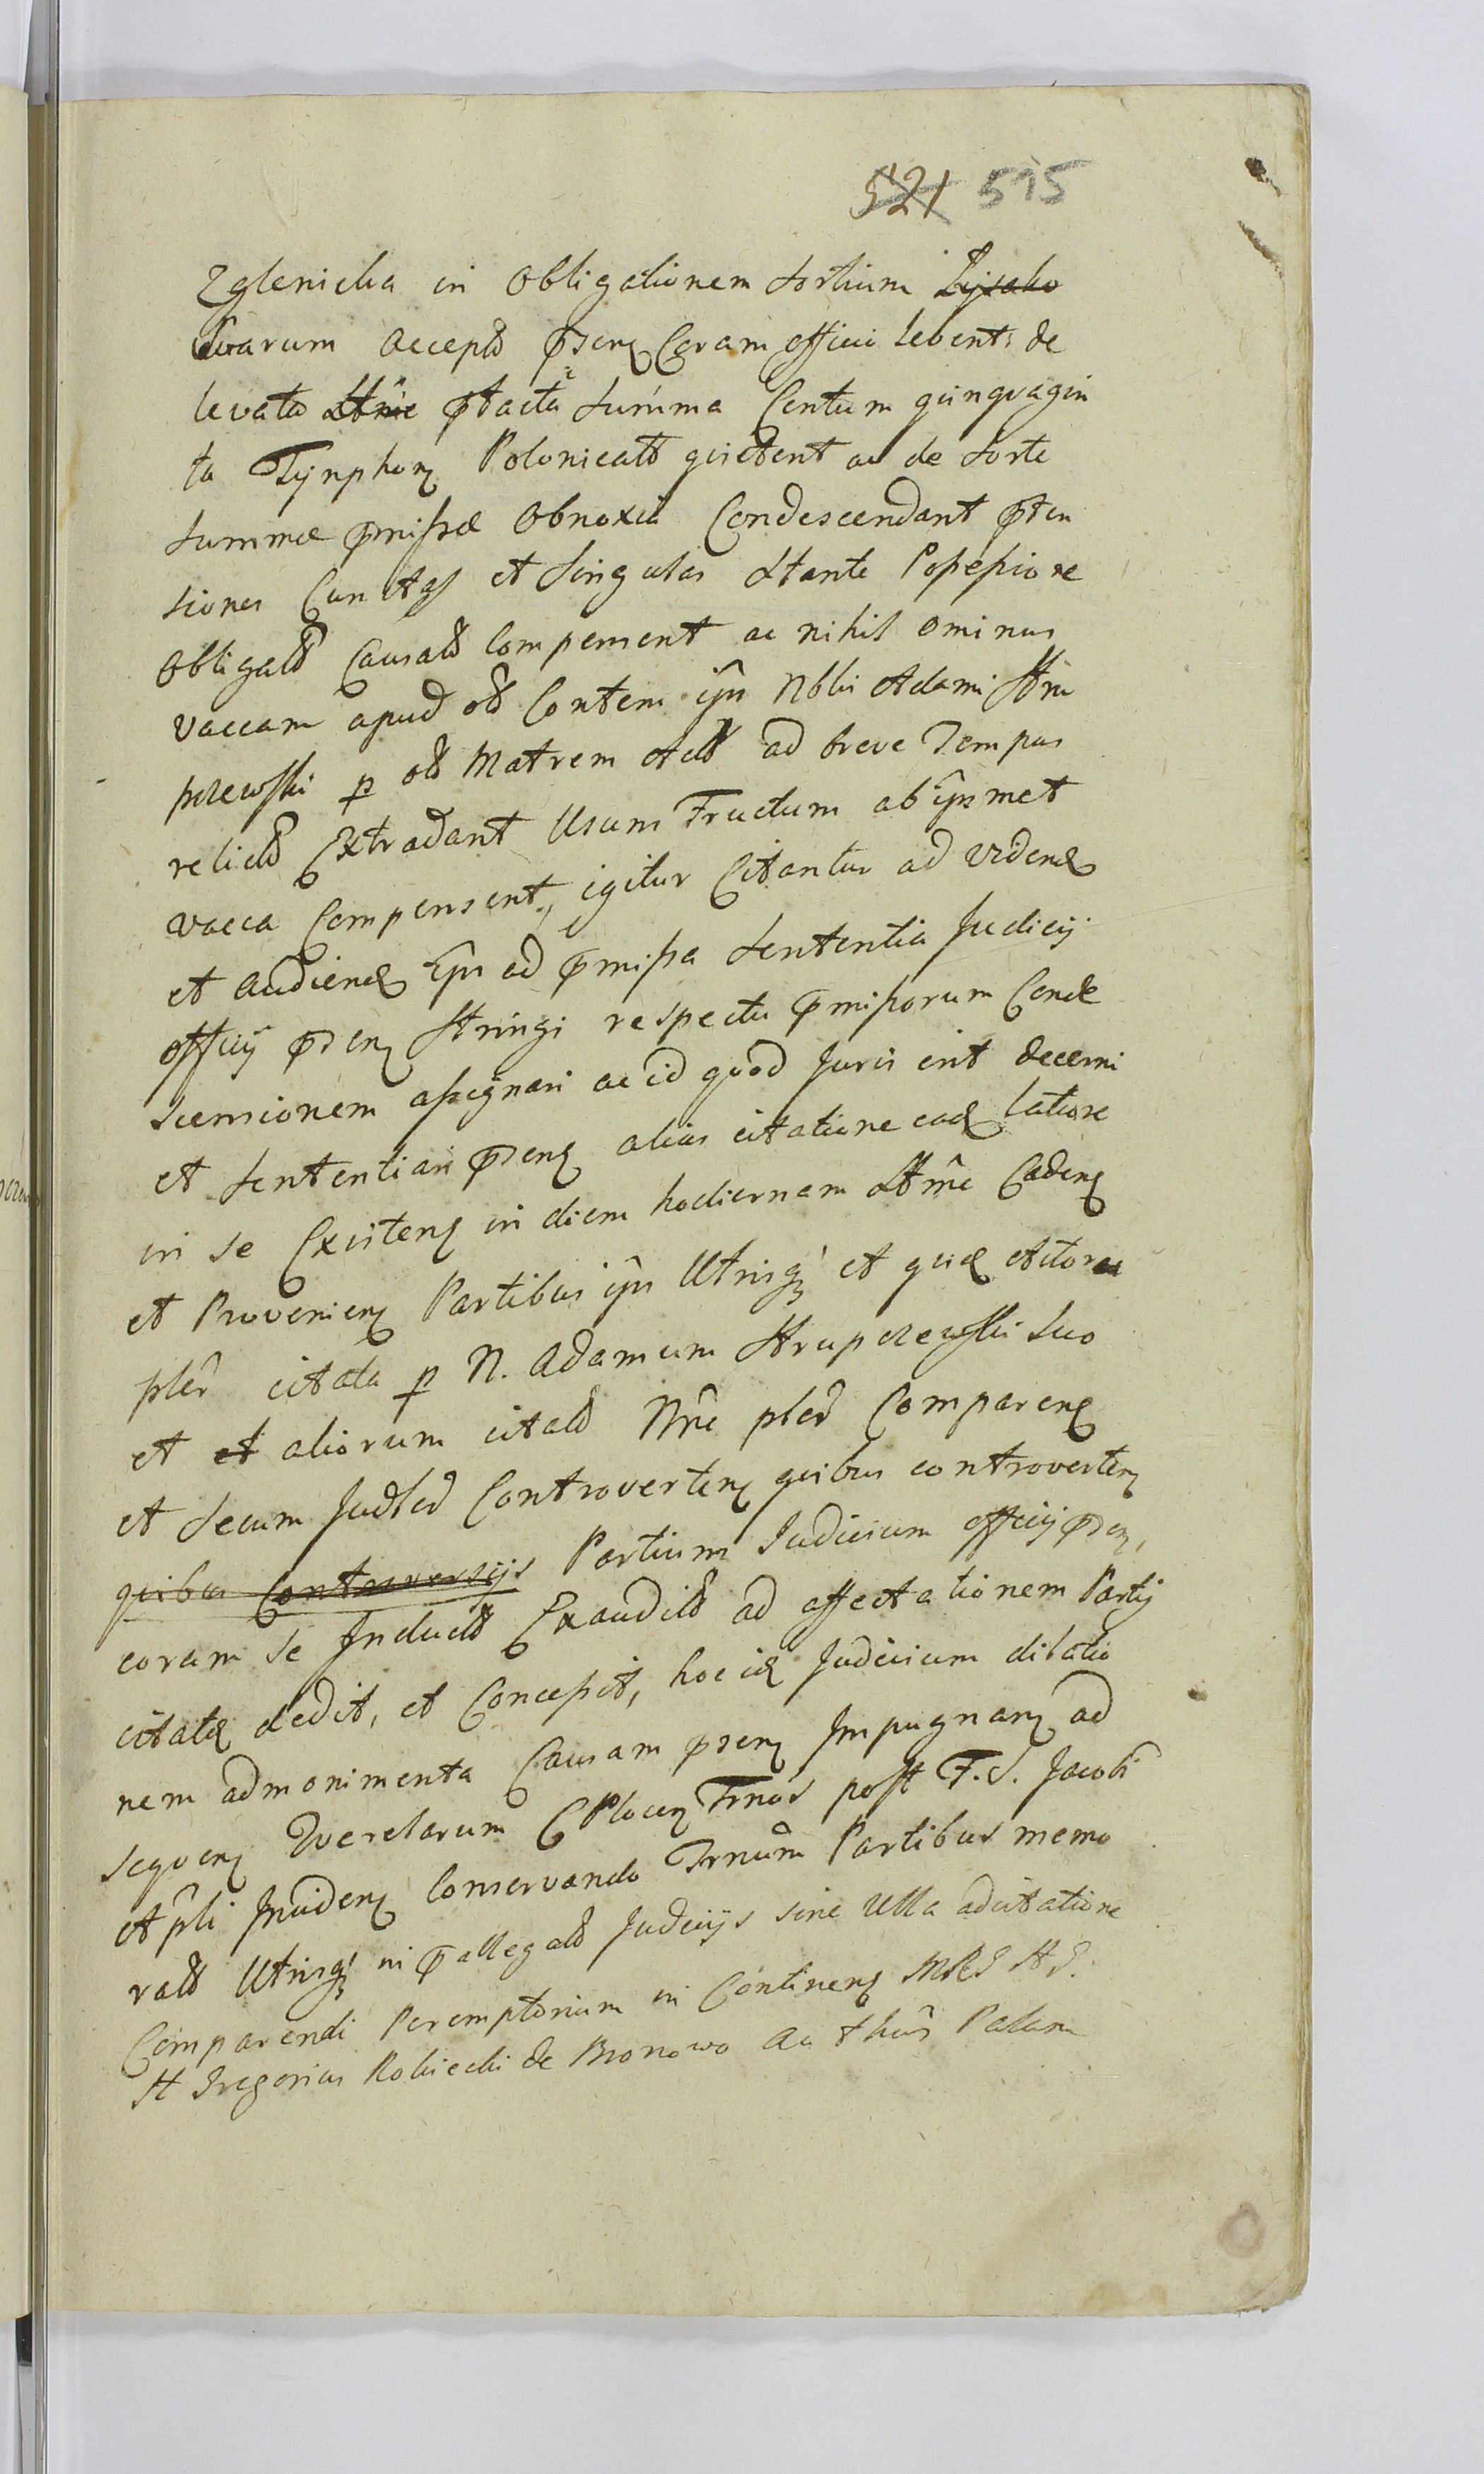 521 515
Zglenicka in Obligationem Sortium Zyzako
Suarum accepto pntem Coram officio lebent de
levata Ltme ptacta Summa Centum quinquagin
ta Tynphorum Polonicalium quietent ac de Sorte
Summæ pmissæ Obnoxia Condescendant pten
siones Cunctas et Singulas Stante Possessione
Obligato Causato Compensent ac nihil ominus
Vaccam apud od Contem ijs Nblis Adami Stru
pczewski p od Matrem Acto ad breve Tempus
relicto Extradant Usum Fructum ab ijsmet
vacca Compensent, igitur Citantur ad vidend
et audiend Ijs ad pmissa Sententia Judicij
officij pntem Stringi respectu pmissorum Conde
scensionem assignari ac id quod Juris erit decerni
et Sententiari pntem alias citatione ead latiore
in se Existem in diem hodiernam Ltme Cadem
et Proveniem Partibus ijs Utrisq et quid Actorea
pler citata p N. Adamum Strupczewski suo
et et aliorum citato Nne pler Comparem
et secum Judler Controvertem quibus controvertem
quibus Controversijs Partium Judicium officij pntem,
coram se Inducto Exaudito ad affectationem Partis
citatæ dedit, et Concessit, hocid Judicium dilatio
nem admonimenta Causam pntem Impugnam ad
sequem Querelarum CPlocen Trnos post F. S. Jacobi
Apli Incidem Conservando Trnum Partibus memo
rato Utrisq in pallegato Judicijs sine Ulla adcitatione
Comparendi Peremptorium in Continem MRS HS.
H Gregorius Kobiecki de Bronowo Ac thus Palam